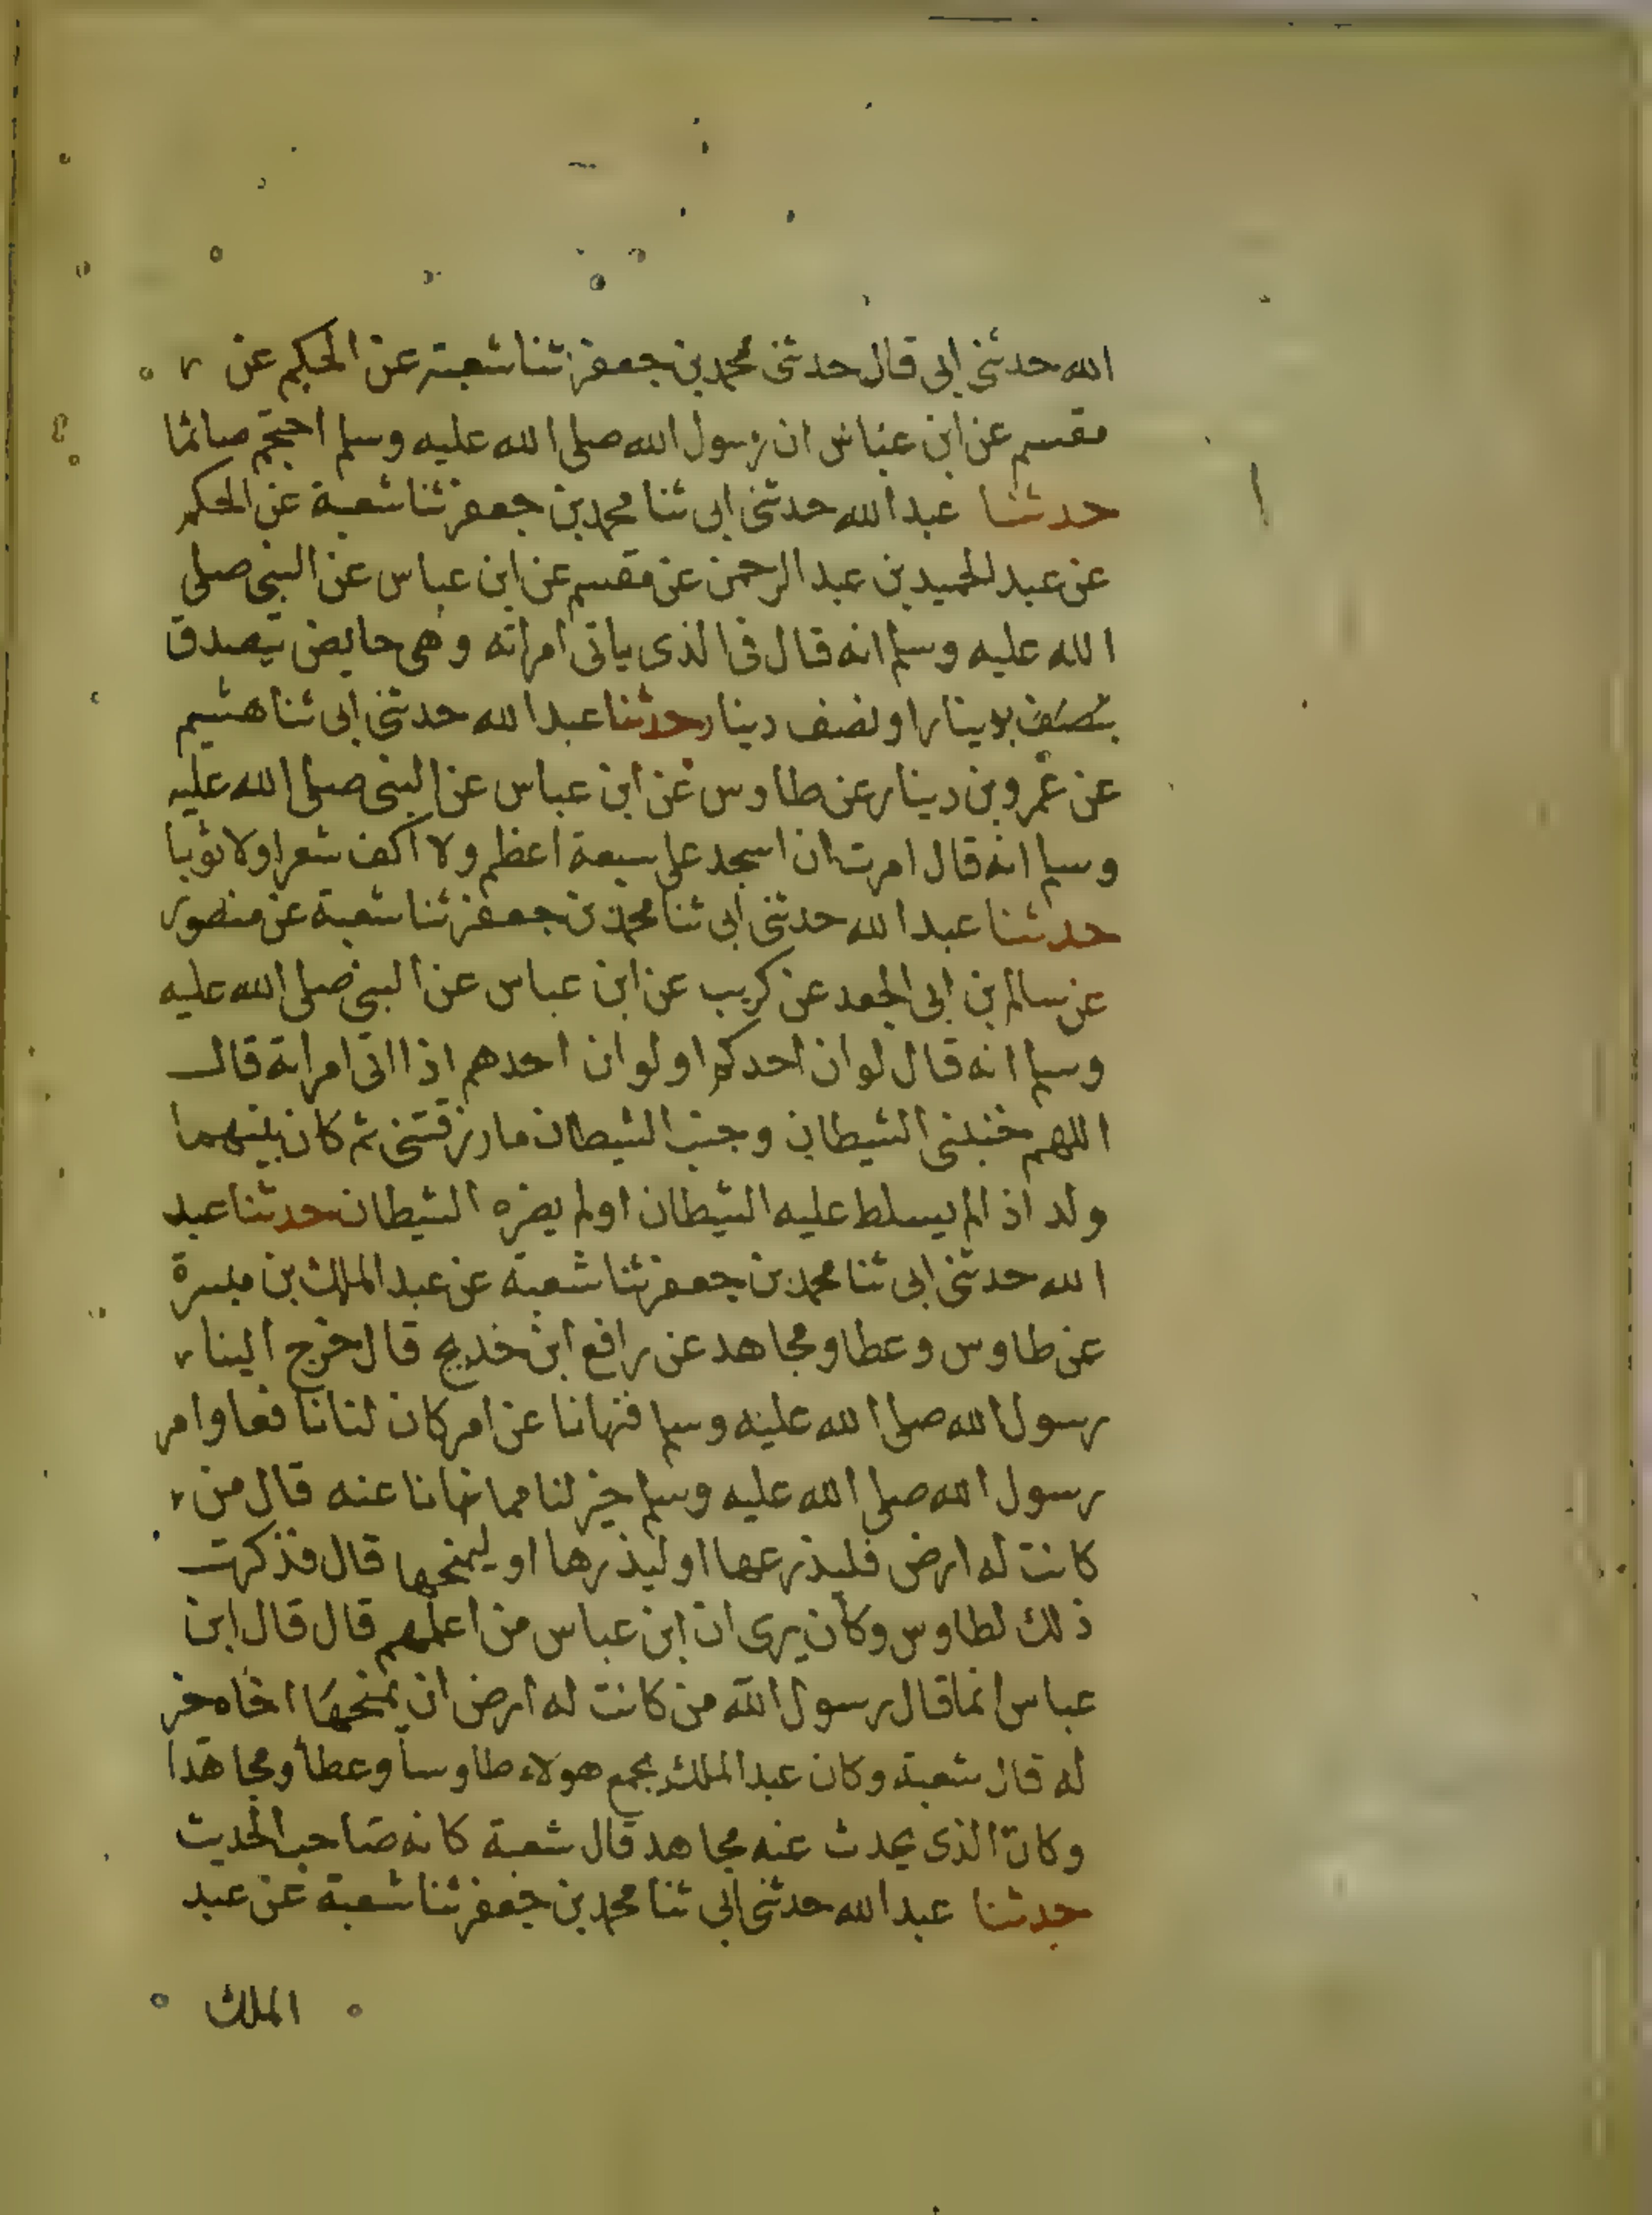 الله حدثنى ابى قال حدثنى محمد بن جعفر ثنا شعبة عن الحكم عن
مقسم عن ابن عباس ان رسول الله صلى الله عليه وسلم احتجم صائما
حدثنا عبد الله حدثنى ابى ثنا محمد بن جعفر ثنا شعبة عن الحكم
عن عبد الحميد بن عبد الرحمن عن مقسم عن ابن عباس عن النبى صلى
الله عليه وسلم انه قال فى الذى ياتى امراته وهى حايض يتصدق
بدينار او نصف دينار حدثنا عبد الله حدثنى ابى ثنا هشيم
عن عمرو بن دينار عن طاوس عن ابن عباس عن النبى صلى الله عليه
وسلم انه قال امرت ان اسجد على سبعة اعظم ولا اكف شعرا ولا ثوبا
حدثنا عبد الله حدثنى ابى ثنا محمد بن جعفر ثنا شعبة عن منصور
عن سالم بن ابى الجعد عن كريب عن ابن عباس عن النبى صلى الله عليه
وسلم انه قال لو ان احدكم او لو ان احدهم اذا اتى امراته قال
اللهم جنبنى الشيطان وجنب الشيطان ما رزقتنى ثم كان بينهما
ولد اذ الم يسلط عليه الشيطان او لم يضره الشيطان حدثنا عبد
الله حدثنى ابى ثنا محمد بن جعفر ثنا شعبة عن عبد الملك بن ميسرة
عن طاوس وعطا ومجاهد عن رافع ابن خديج قال خرج الينا
رسول الله صلى الله عليه وسلم فنهانا عن امر كان لنا نافعا وامر
رسول الله صلى الله عليه وسلم خير لنا مما نهانا عنه قال من
كانت له ارض فليذرعها او ليذرها او ليمنحها قال فذكرت
ذلك لطاوس وكان يرى ان ابن عباس من اعلمهم قال قال ابن
عباس انما قال رسول الله من كانت له ارض ان يمنحها اخاه خر
له قال شعبة وكان عبد الملك يجمع هولاء طاوسا وعطا ومجاهدا
وكان الذى يحدث عنه مجاهد قال شعبة كانه صاحب الحديث
حدثنا عبد الله حدثنى ابى ثنا محمد بن جعفر ثنا شعبة عن عبد
الملك